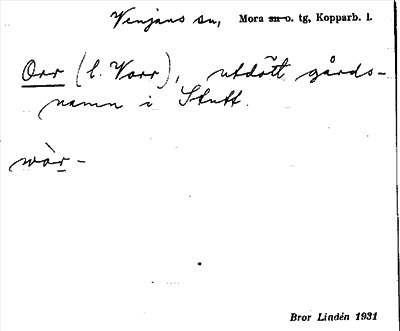 Venjans sn, Mora sn o. tg, Kopparb. l.
Orr (l. Vorr), utdött gårds-
namn i Stutt.
wòr-
Bror Lindén 1931